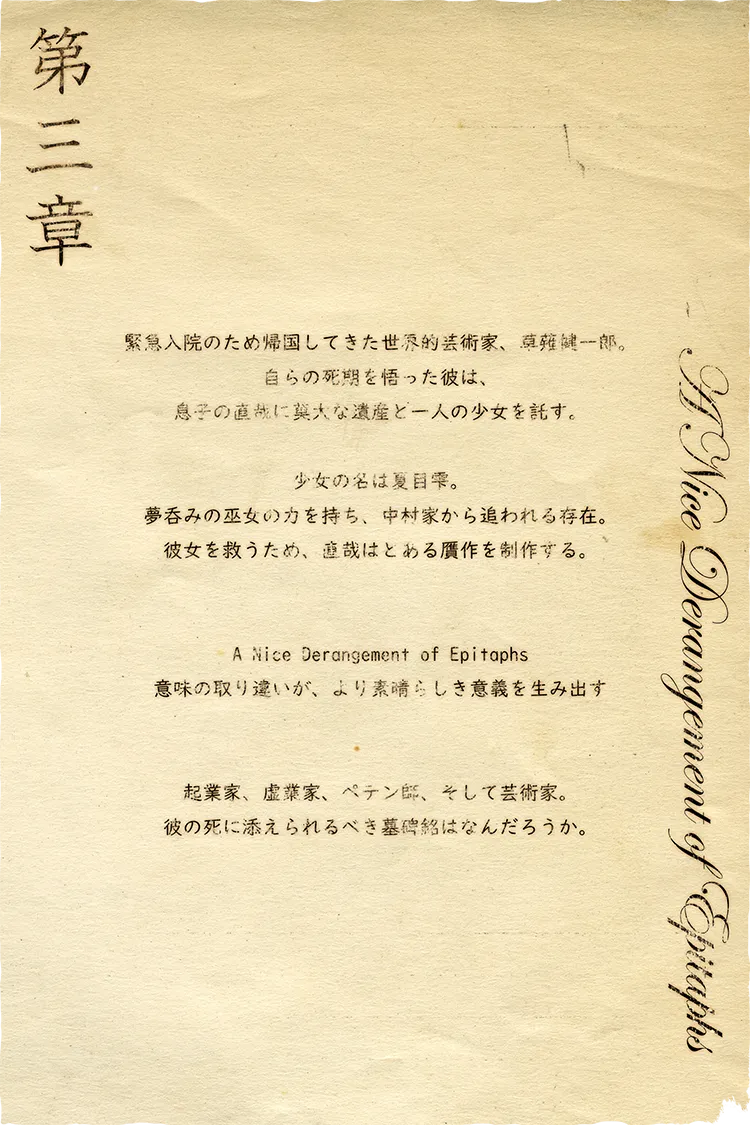 第三章
緊急入院のため帰国してきた世界的芸術家、草薙健一郎。
自らの死期を悟った彼は、
息子の直哉に莫大な遺産と一人の少女を託す。
少女の名は夏目雫。
夢呑みの巫女の力を持ち、中村家から追われる存在。
彼女を救うため、直哉はとある贋作を制作する。
A Nice Derangement of Epitaphs
意味の取り違いが、より素晴らしき意義を生み出す
起業家、虚業家、ペテン師、そして芸術家。
彼の死に添えられるべき墓碑銘はなんだろうか。
A Nice Derangement of Epitaphs